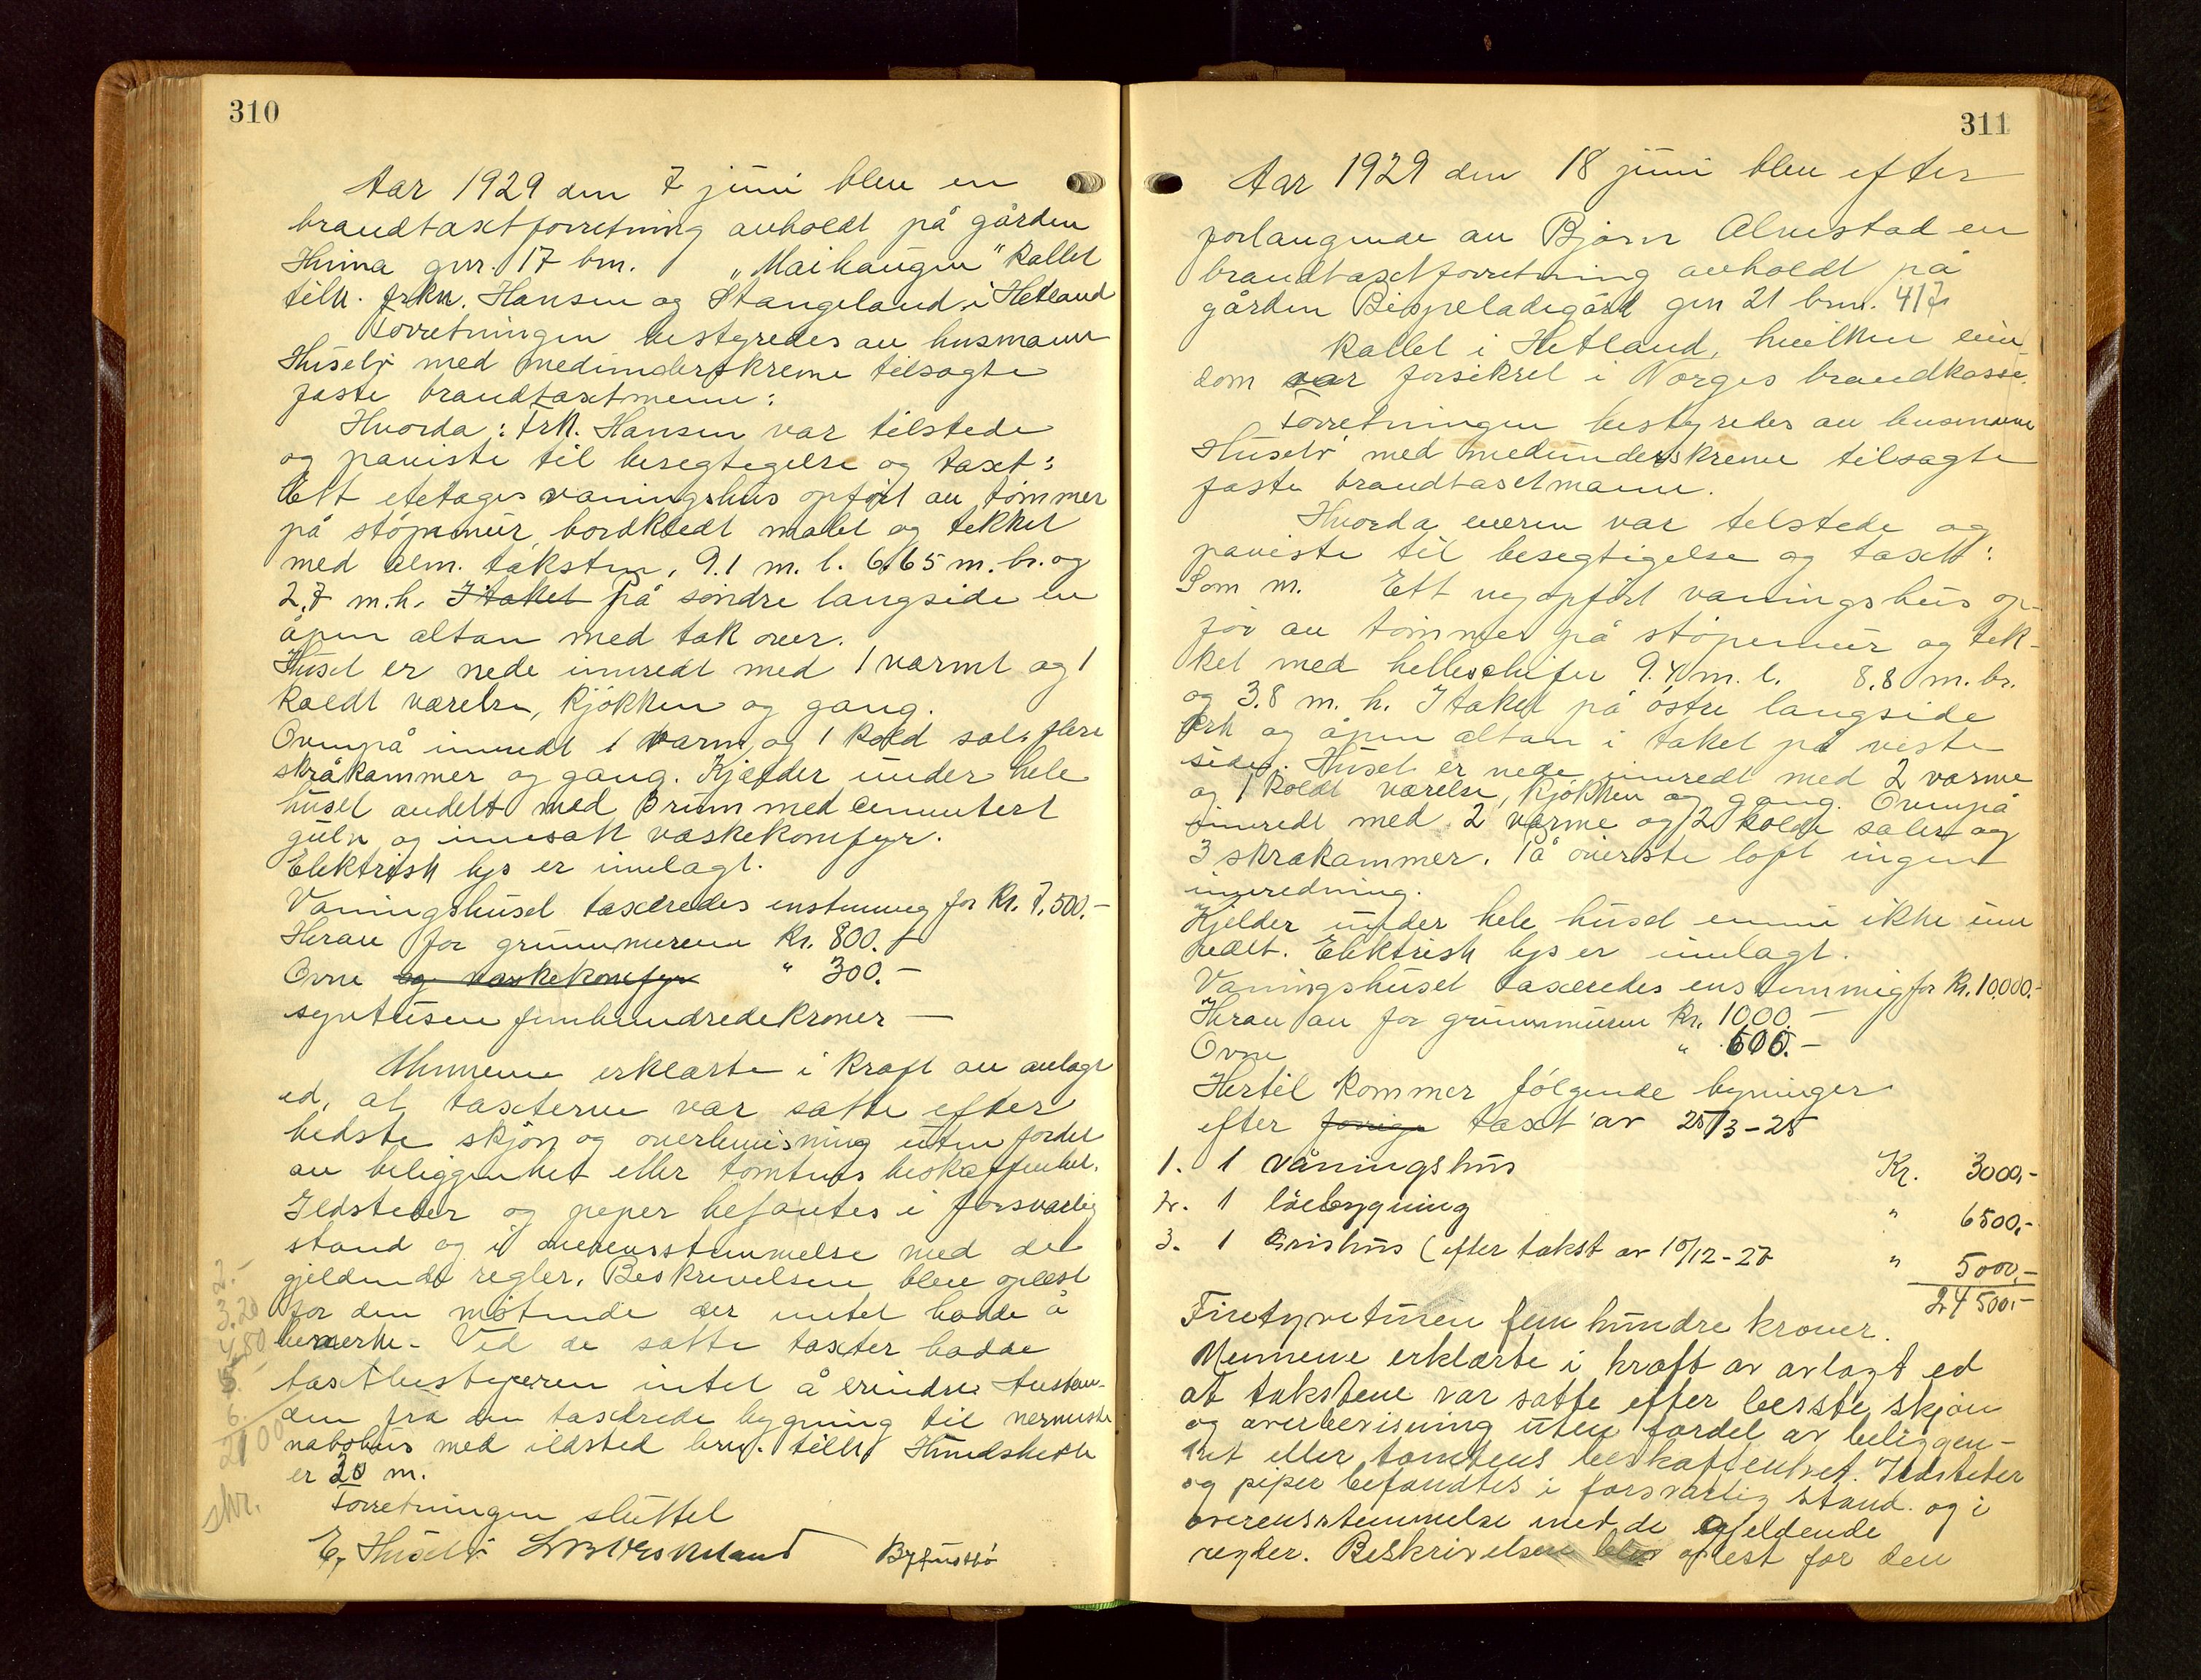 310
Aar 1929 den 7 juni blev en
brandtaxtforretning avholdt på gården
Hinna gnr. 17 bnr. „Maihaugen" kallet
tilh. frkn. Hansen og Stangeland i Hetland
Forretningen bestyredes av husmann
Huselv med medunderskrevne tilsagte
faste brandtaxtmenn:
Hvorda: Frk. Hansen var tilstede
og paviste til besegtegelse og taxt:
Ett etetages vaningshus opført av tømmer
på støpemur, bordklædt malet og tekket
med alm. taksten, 9.1 m. l. 6.65 m. br. og
2,7 m.h. I taket på søndre langside en
åpen altan med tak over.
Huset er nede innredt med 1 varmt og 1
koldt værelse, kjøkken og gang.
Ovenpå innredt 1 varm og 1 kold sal, flere
skråkammer og gang. Kjælder under hele
huset avdelt med Brum med cementert
gulv og innesatt vaskekomfyr.
Elektrisk lys er innlagt.
Vaningshuset taxeredes enstemmig for Kr. 7.500.-
Herav for grunnmuren Kr. 800.-
Ovne og vaskekomfyr " 300.-
syvtusen femhundredekroner —
Mennene erklærte i kraft av avlagt
ed, at taxterne var satte efter
bedste skjøn og overbevisning uten fordel
av beliggenhet eller tomtens beskaffenhet.
Ildsteder og peper befantes i forsvarlig
stand og i overensstemmelse med de
gjeldende regler. Beskrivelsen blev oplest
for den møtende der intet hadde å
bemerke. Ved de satte taxter hadde
taxtbestyreren intet å erindre. Avstan-
den fra den taxerede bygning til nermeste
nabohus med ildsted bnr. tilh. Hundsheth
er 20 m.
Forretningen sluttet
E. Huselv
2.-
3.20
4.80
5.-
6.
21 00
skr.
311
Aar 1929 den 18 juni blev efter
forlangende av Bjørn Alvestad en
brandtaxtforretning avholdt på
gården Bispeladegård gnr 21 bnr. 417
kallet i Hetland, hvilken eien-
dom var forsikret i Norges brandkasse.
Forretningen bestyredes av husmann
Huselv med medunderskrevne tilsagte
faste brandtaxtmenn.
Hvorda eieren var telstede og
paviste til besegtigelse og taxt:
Som nr. Ett nyopført vaningshus op-
før av tømmer på støpemur og tek-
ket med helleschifer 9.4 m. l. 8.8 m. br.
og 3.8 m. h. I taket på østre langside
ark og åpen altan i taket på vestre
siden. Huset er nede innredt med 2 varme
og 1 koldt værelse, kjøkken og gang. Ovenpå
innredt med 2 varme og 2 kolde saler og
3 skrakammer. På øverste loft ingen
innredning.
Kjelder under hele huset ennu ikke inn
redt. Elektrisk lys er innlagt.
Vaningshuset taxeredes enstemmig for Kr. 10.000.-
Herav av for grunnmuren Kr. 1000.-
Ovne " 600.-
Hertil kommer følgende bygninger
efter forrige taxt av 25/3-25
1. 1 våningshus Kr. 3000,-
2. 1 løebygning " 6500,-
3. 1 Grishus (efter takst av 10/12-27 " 5000,-
24500,-
Firetyvetusen fem hundre kroner.
Mennene erklærte i kraft av avlagt ed
at takstene var satte efter beste skjøn
og overbevisning uten fordel av beliggen-
het eller tomtens beskaffenhet. Ildsteder
og piper befandtes i forsvarlig stand og i
overensstemmelse med de gjeldende
regler. Beskrivelsen blev oplest for den